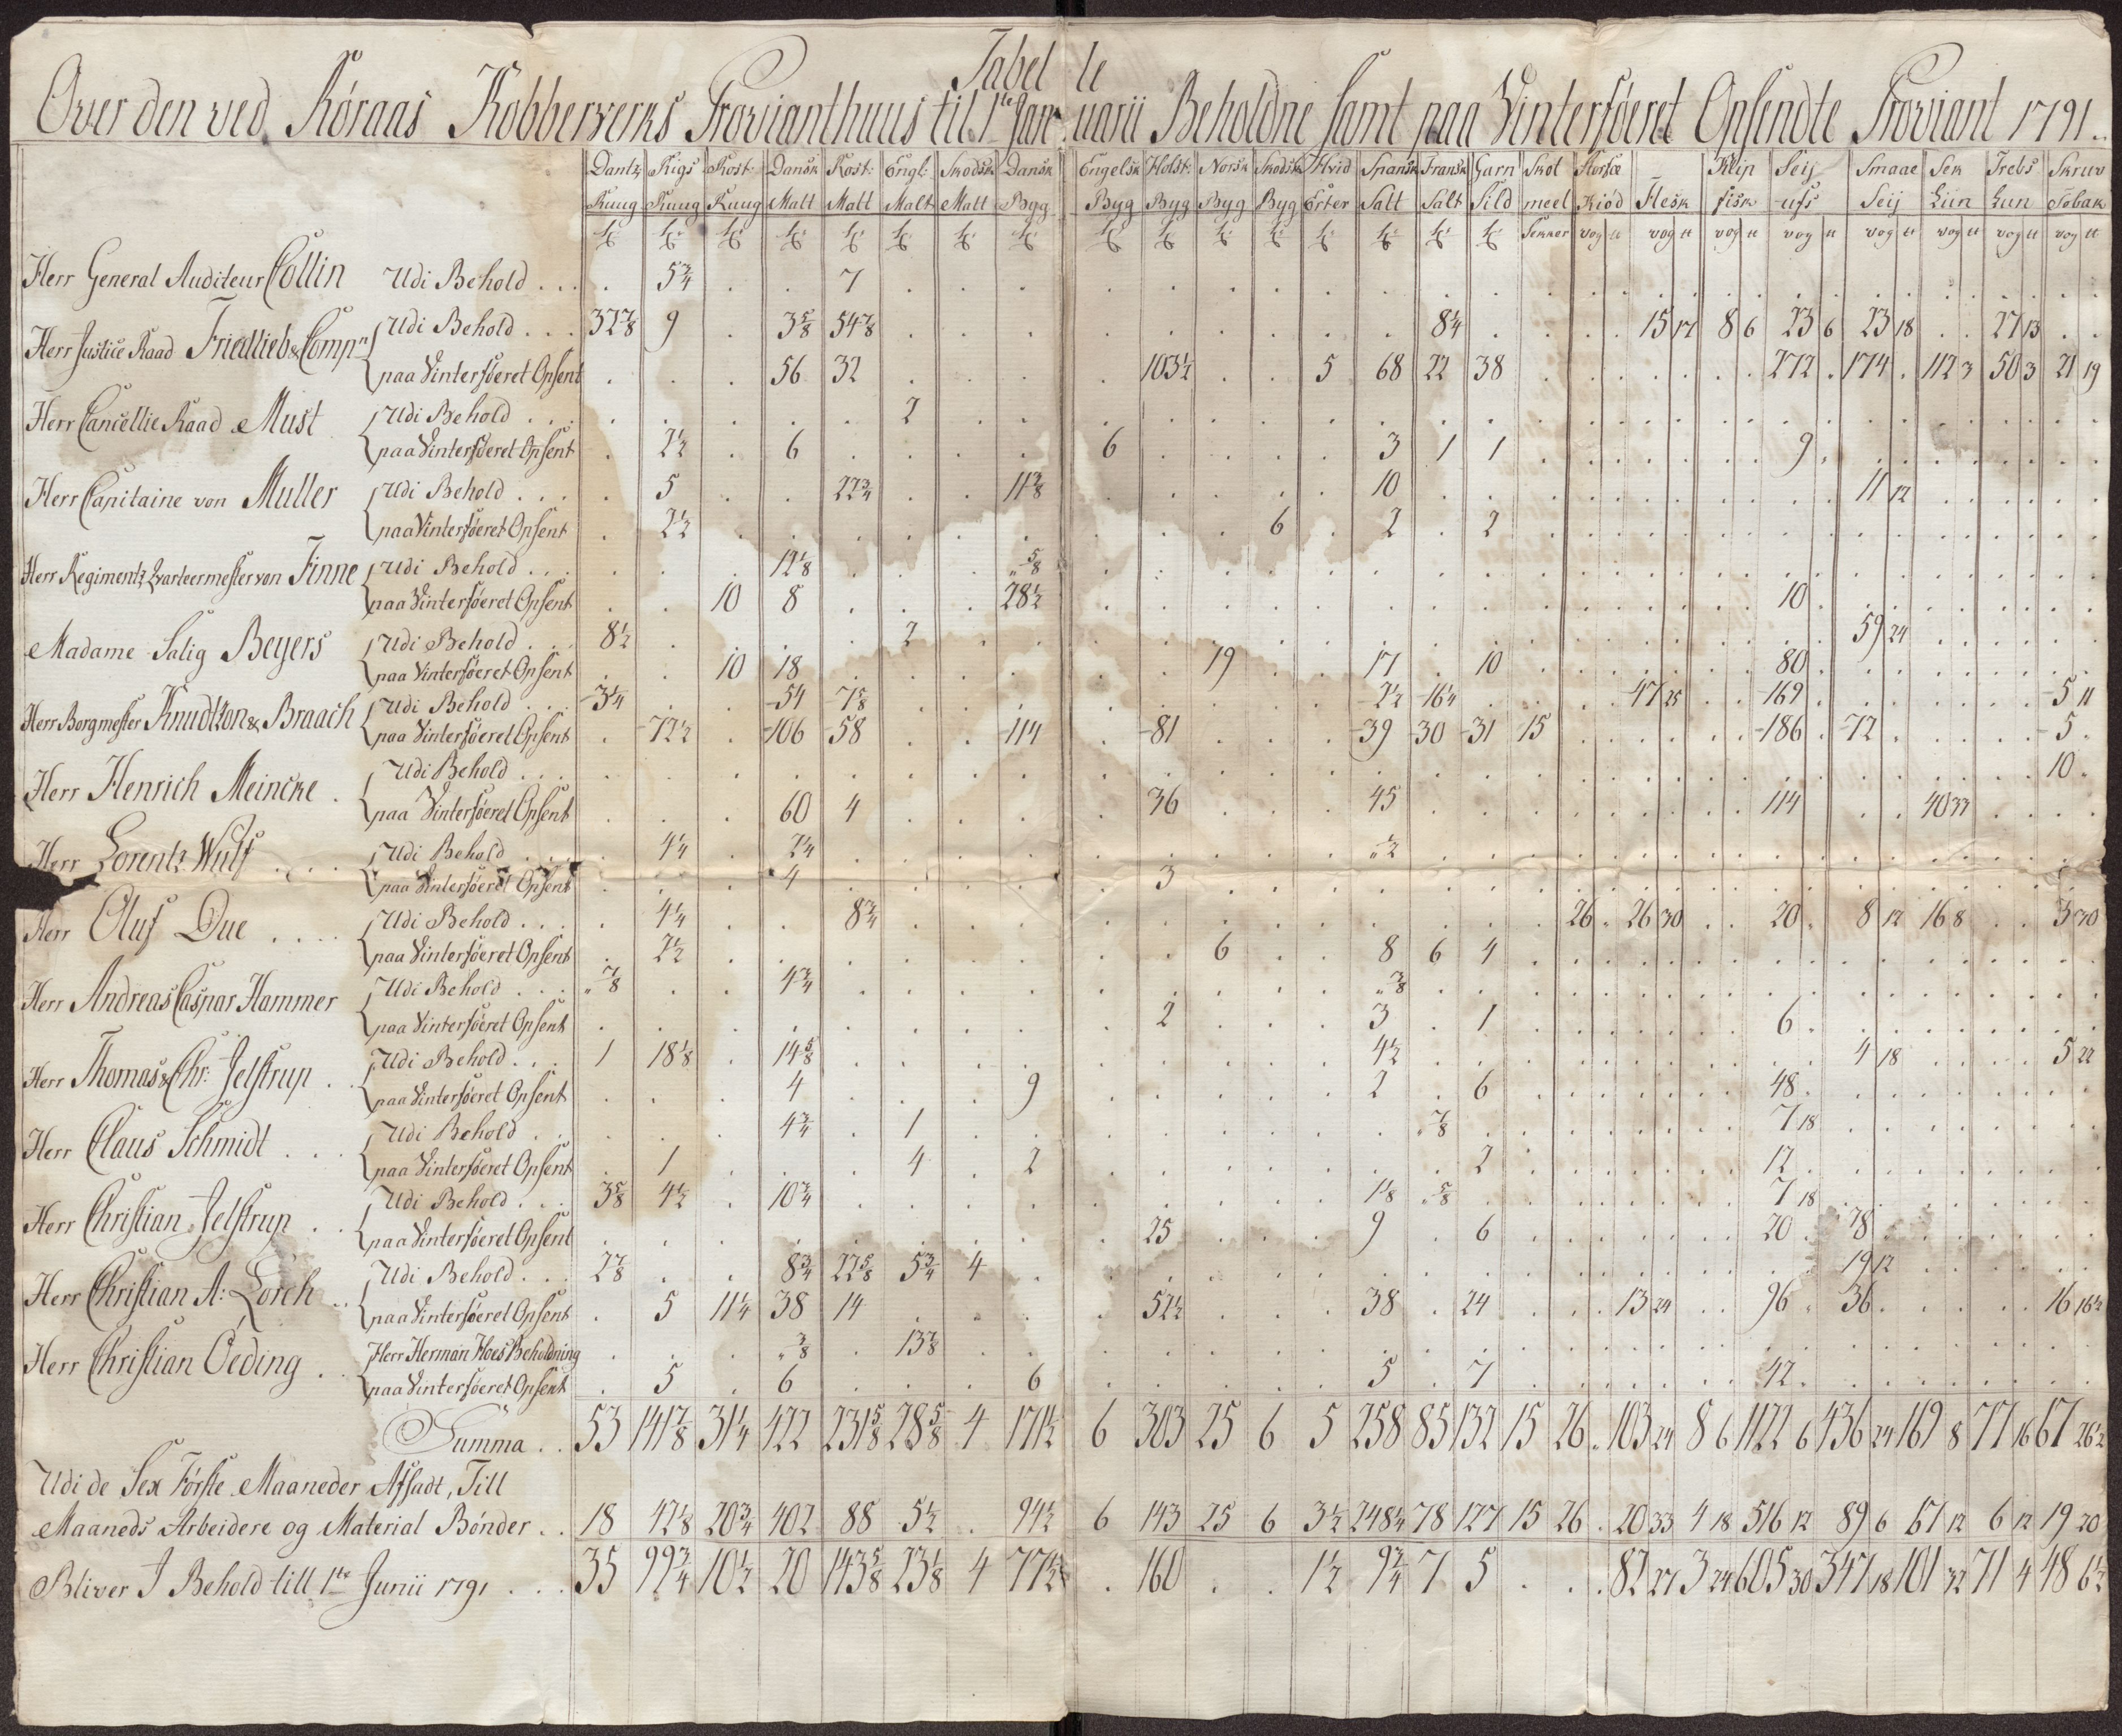 Tabelle
Over den ved Röraas Kobberverks Provianthuus til 1te Januarii Beholdne samt paa Vinterföeret Opsendte Proviant 1791..
Dantz. Rigs Rost: Dansk Rost: Engl: Skodsk Dansk Engelsk Holst: Norsk Skodsk Hvid Spansk Fransk Garn Skot Klip Seij Smaae Sek Trebs Skruv
Ruug Ruug Ruug Malt Malt Malt Malt Byg Byg Byg Byg Byg Erter Salt Salt Sild meel Kiöd Flesk fisk ufs Seij Liin Liin Tobak
Sekker vog vog vog vog vog vog vog vog
Herr General Auditeur Collin Udi Behold . . . . 5 3/4 . . 7 . . .
Herr Justice Raad Friedlieb & Compn Udi Behold . . . 32 7/8 9 . 3 5/8 54 7/8 . . . 8 1/4 . . . 15 17 8 6 23 6 23 18 . . 27 13 . .
paa Vinterföeret Opsent . . . 56 32 . . . . 103 1/2 . . 5 68 22 38 . . . 272 . 174 . 112 3 50 3 21 19
Herr Cancellie Raad Must Udi Behold . . . 2
paa Vinterföeret Opsent . 2 1/2 . 6 . . . . 6 . . . . 3 1 1 . . . 9 .
Herr Capitaine von Muller Udi Behold . . . . 5 . . 22 3/4 . . 11 3/8 . . . 10 . . . 11 12
paa Vinterföeret Opsent . 2 1/2 . . . 6 . 2 . 2
Herr Regimentz Qvarteermester von Finne Udi Behold . . . 12 1/8 . . . " 5/8
paa Vinterföeret Opsent . . 10 8 . . . 28 1/2 . . . 10 .
Madame Salig Beyers Udi Behold . . . 8 1/2 . . . . 2 . . . 59 24
paa Vinterföeret Opsent . . 10 18 . . . 19 . . 17 . 10 . . . 80 .
Herr Borgmester Knudtzon & Braach Udi Behold . . . -3 1/4 . . -54 -7 5/8 . . . -2 1/2 -16 1/4 . . . -47 25 . . -169 . . . -5 11
paa Vinterföeret Opsent . -72 1/2 . -106 -58 . . -114 . -81 . . . -39 -30 -31 15 . . . -186 . -72 . . . -5 .
Herr Henrich Meincke . Udi Behold . . . 10 .
paa Vinterföeret Opsent . . . 60 4 . . . . 36 . . . 45 . . . 114 . . . 40 33
Herr Lorentz Wulf . . . . Udi Behold . . . . 4 1/4 . 2 1/4 . . . " 1/2
paa Vinterföeret Opsent . . . 4 . . . . . 3
Herr Oluf Due . . . . Udi Behold . . . . 4 1/4 . . 8 3/4 . . . 26 . 26 30 . . 20 . 8 12 16 8 . . 3 30
paa Vinterföeret Opsent . 2 1/2 . . . 6 . . 8 6 4
Herr Andreas Caspar Hammer Udi Behold . . . " 7/8 . . 4 3/4 . . . " 3/8
paa Vinterföeret Opsent . . . 2 . . . 3 . 1 . . . 6 .
Herr Thomas & Chr: Jelstrup . . Udi Behold . . . 1 18 1/8 . 14 5/8 . . . 4 1/2 . . . 4 18 . . . 5 22
paa Vinterföeret Opsent . . . 4 . . . 9 . . . 2 . 6 . . . 48 .
Herr Claus Schmidt . . . Udi Behold . . . . . 4 3/4 . 1 . . . " 7/8 . . . 7 18
paa Vinterföeret Opsent . 1 . . . 4 . 2 . . . 2 . . . 12 .
Herr Christian Jelstrup . . Udi Behold . . . 3 5/8 4 1/2 . 10 3/4 . . . 1 1/8 " 5/8 . . . 7 18
paa Vinterföeret Opsent . . . 25 . . . 9 . 6 . . . 20 . 78 .
Herr Christian A: Lorch . . Udi Behold . . . 2 7/8 . . 8 3/4 22 5/8 5 3/4 4 . . . 19 12
paa Vinterföeret Opsent . 5 11 1/4 38 14 . . . . 52 1/2 . . . 38 . 24 . . . 13 24 . . 96 . 36 . . . 16 16 1/2
Herr Christian Oeding . . Herr Herman Hoes Beholdning . . . " 3/8 . 13 7/8
paa Vinterföeret Opsent . 5 . 6 . . . 6 . . . 5 . 7 . . . 42 .
Summa . . 53 141 7/8 31 1/4 422 231 5/8 28 5/8 4 171 1/2 6 303 25 6 5 258 85 132 15 26 . 103 24 8 6 1122 6 436 24 169 8 77 16 67 26 1/2
Udi de Sex Förste Maaneder Afsadt, Till
Maaneds Arbeidere og Material Bönder . . 18 42 1/8 20 3/4 402 88 5 1/2 . 94 1/2 6 143 25 6 3 1/2 248 1/4 78 127 15 26 . 20 33 4 18 516 12 89 6 67 12 6 12 19 20
Bliver J Behold till 1te Junii 1791 . . . 35 99 3/4 10 1/2 20 143 5/8 23 1/8 4 77 1/2 . 160 . . 1 1/2 9 3/4 7 5 . . . 82 27 3 24 605 30 347 18 101 32 71 4 48 6 1/2